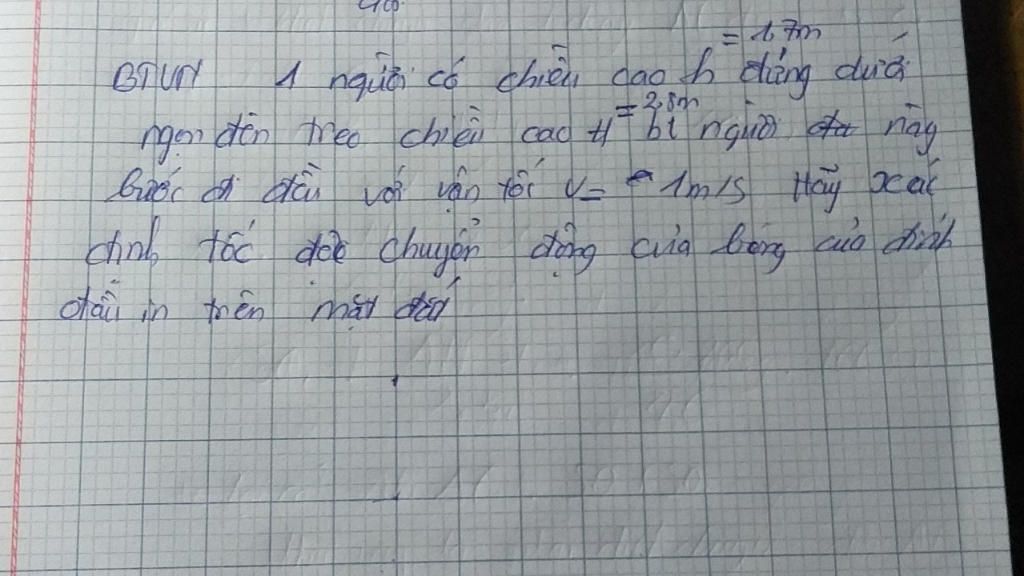 = 1,7m
BTVN 1 người có chiều cao h đứng dưới
= 2,8m
ngọn đèn treo chiều cao H bt người này
bước đi đều với vận tốc v = 1m/s Hãy xác
định tốc độ chuyển động của bóng của đỉnh
đầu in trên mặt đất